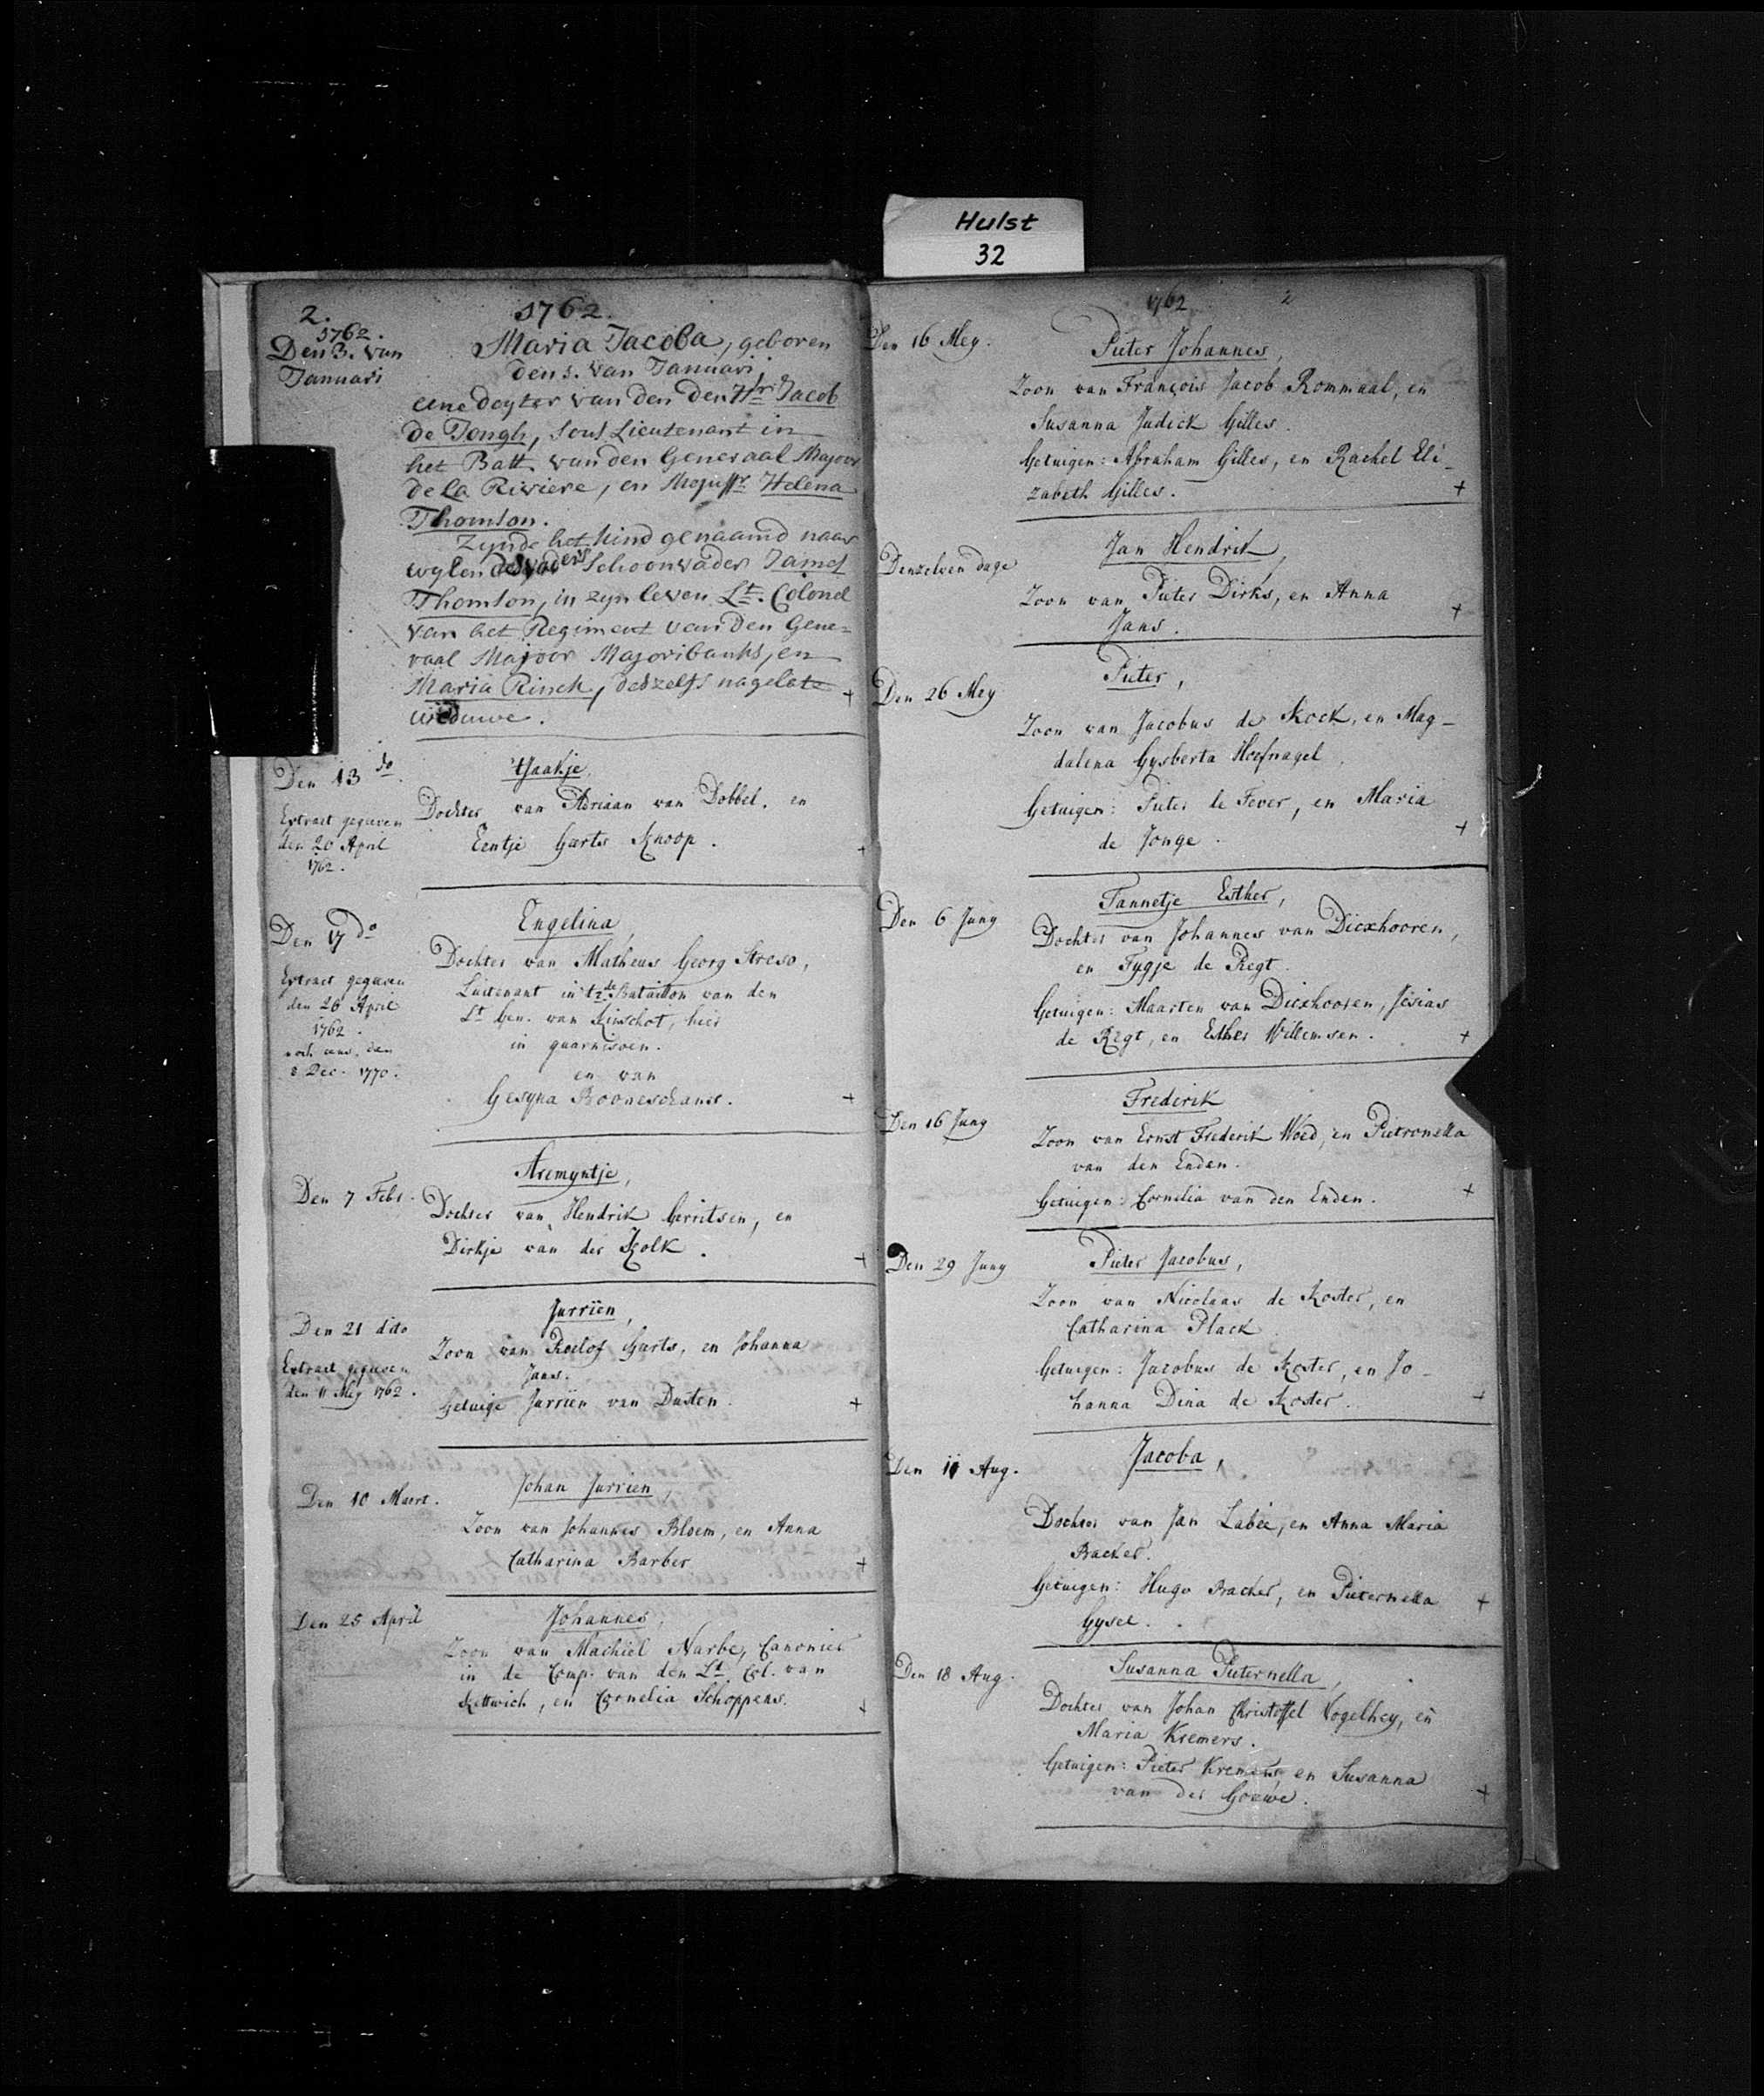 Hulst
32
2.
1762.
1762.
Den 3. van
Januari
Maria Jacoba, geboren
den 1. van Januari,
eene dogter van den den Hr. Jacob
de Jongh, Sous Lieutenant in
het Batt. van den Generaal Majoor
de La Riviere, en Mejuffr. Helena
Thomson.
Zynde het kind genaamd naar
wylen des vaders Schoonvader James
Thomson, in zyn leven Lt. Colonel
van het Regiment van den Gene=
raal Majoor Majoribanks, en
Maria Rinck, deszelfs nagelate
weduwe.
Den 13 do.
Extract gegeven
den 20 April
1762.
Tjaakje,
Dochter van Adriaan van Dobbel. en
Eentje Gerts Knoop.
Den 17 do
Extract gegeven
den 26 April
1762.
noch eens, den
8 Dec. 1770.
Engelina,
Dochter van Matheus Georg Streso,
Luitenant in 't 2de Bataillon van den
Lt Gen. van Kinschot, hier
in guarnisoen.
en van
Gesyna Booneschans.
Den 7 Febr.
Aremyntje,
Dochter van Hendrik Gerritsen, en
Dirkje van der Kolk.
Den 21 dito
Extract gegeven
den 11 Mey 1762.
Jurriën,
Zoon van Roelof Harts, en Johanna
Jans.
Getuige Jurriën van Dusten.
Den 10 Maert.
Johan Jurrien,
Zoon van Johannes Bloem, en Anna
Catharina Barber
Den 25 April
Johannes,
Zoon van Machiel Narbe, Canonier
in de Comp. van den Lt. Col. van
Kettwich, en Cornelia Schoppens.
1762.
2
Den 16 Mey.
Pieter Johannes,
Zoon van François Jacob Rommaal, en
Susanna Judick Gilles.
Getuigen: Abraham Gilles, en Rachel Eli-
zabeth Gilles.
Denzelven dage
Jan Hendrik,
Zoon van Pieter Dirks, en Anna
Jans.
Den 26 Mey
Pieter,
Zoon van Jacobus de Kock, en Mag-
dalena Gysberta Hoefnagel.
Getuigen: Pieter le Fever, en Maria
de Jonge.
Den 6 Juny
Tannetje Esther,
Dochter van Johannes van Diexhooren,
en Fygje de Regt.
Getuigen: Maarten van Diexhooren, Jesias
de Regt, en Esther Willemsen.
Den 16 Juny
Frederik
Zoon van Ernst Frederik Woed, en Pietronella
van den Enden.
Getuigen: Cornelia van den Enden.
Den 29 Juny
Pieter Jacobus,
Zoon van Nicolaas de Koster, en
Catharina Plack
Getuigen: Jacobus de Koster, en Jo-
hanna Dina de Koster.
Den 11 Aug.
Jacoba,
Dochter van Jan Labée, en Anna Maria
Backer.
Getuigen: Hugo Backer, en Pieternella
Gysel.
Den 18 Aug.
Susanna Pieternella,
Dochter van Johan Christoffel Vogelhey, en
Maria Kremers.
Getuigen: Pieter Kremers, en Susanna
van der Gouwe.